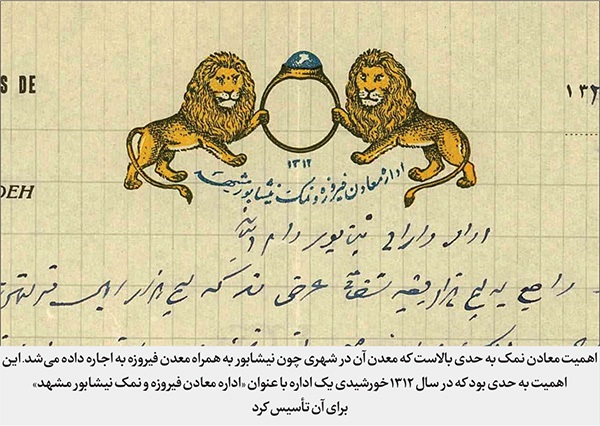 S DE
۱۳۶
DEH
۱۳۱۲
اداره معادن فیروزه و نمک نیشابور مشهد
اداره دارائی نیشابور
راجع به پنج هزار عرض که پنج هزار
اهمیت معادن نمک به حدی بالاست که معدن آن در شهری چون نیشابور به همراه معدن فیروزه به اجاره داده می‌شد. این
اهمیت به حدی بود که در سال ۱۳۱۲ خورشیدی یک اداره با عنوان «اداره معادن فیروزه و نمک نیشابور مشهد»
برای آن تأسیس کرد